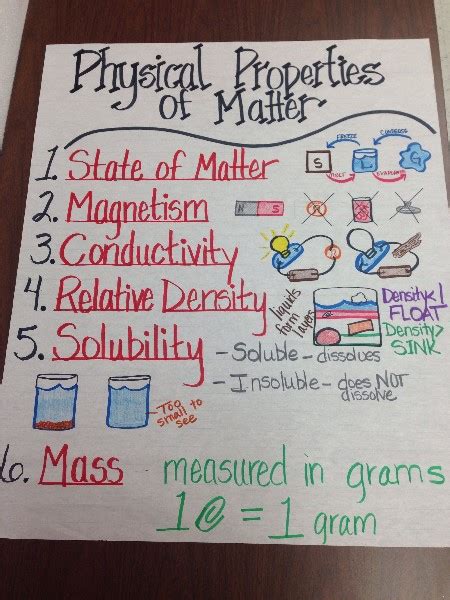 Physical Properties
of Matter
1. State of Matter
FREEZE
CONDENSE
S
L
G
MELT
EVAPORATE
2. Magnetism
N S
3. Conductivity
4. Relative Density
liquids
form
layers
Density<1
FLOAT
Density>
SINK
5. Solubility
- Soluble - dissolves
- Insoluble - does NOT
dissolve
Too
small to
see
6. Mass
measured in grams
1 = 1 gram